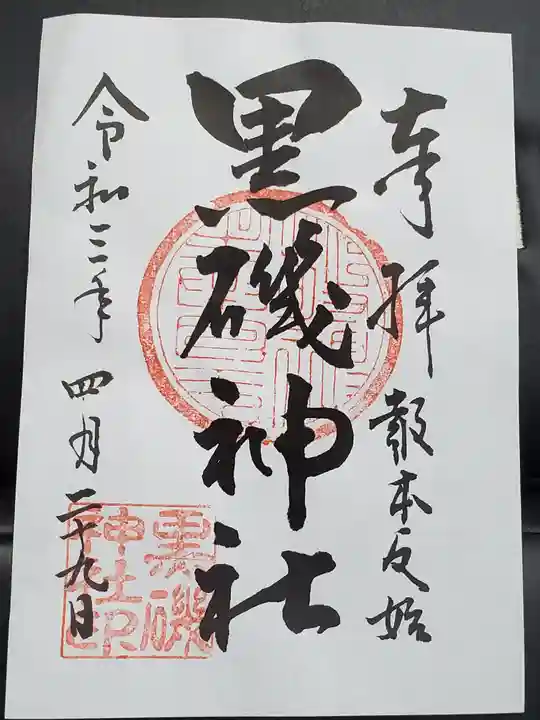 奉拝
報本反始
黒磯神社
令和三年四月二十九日
黒磯
神社印